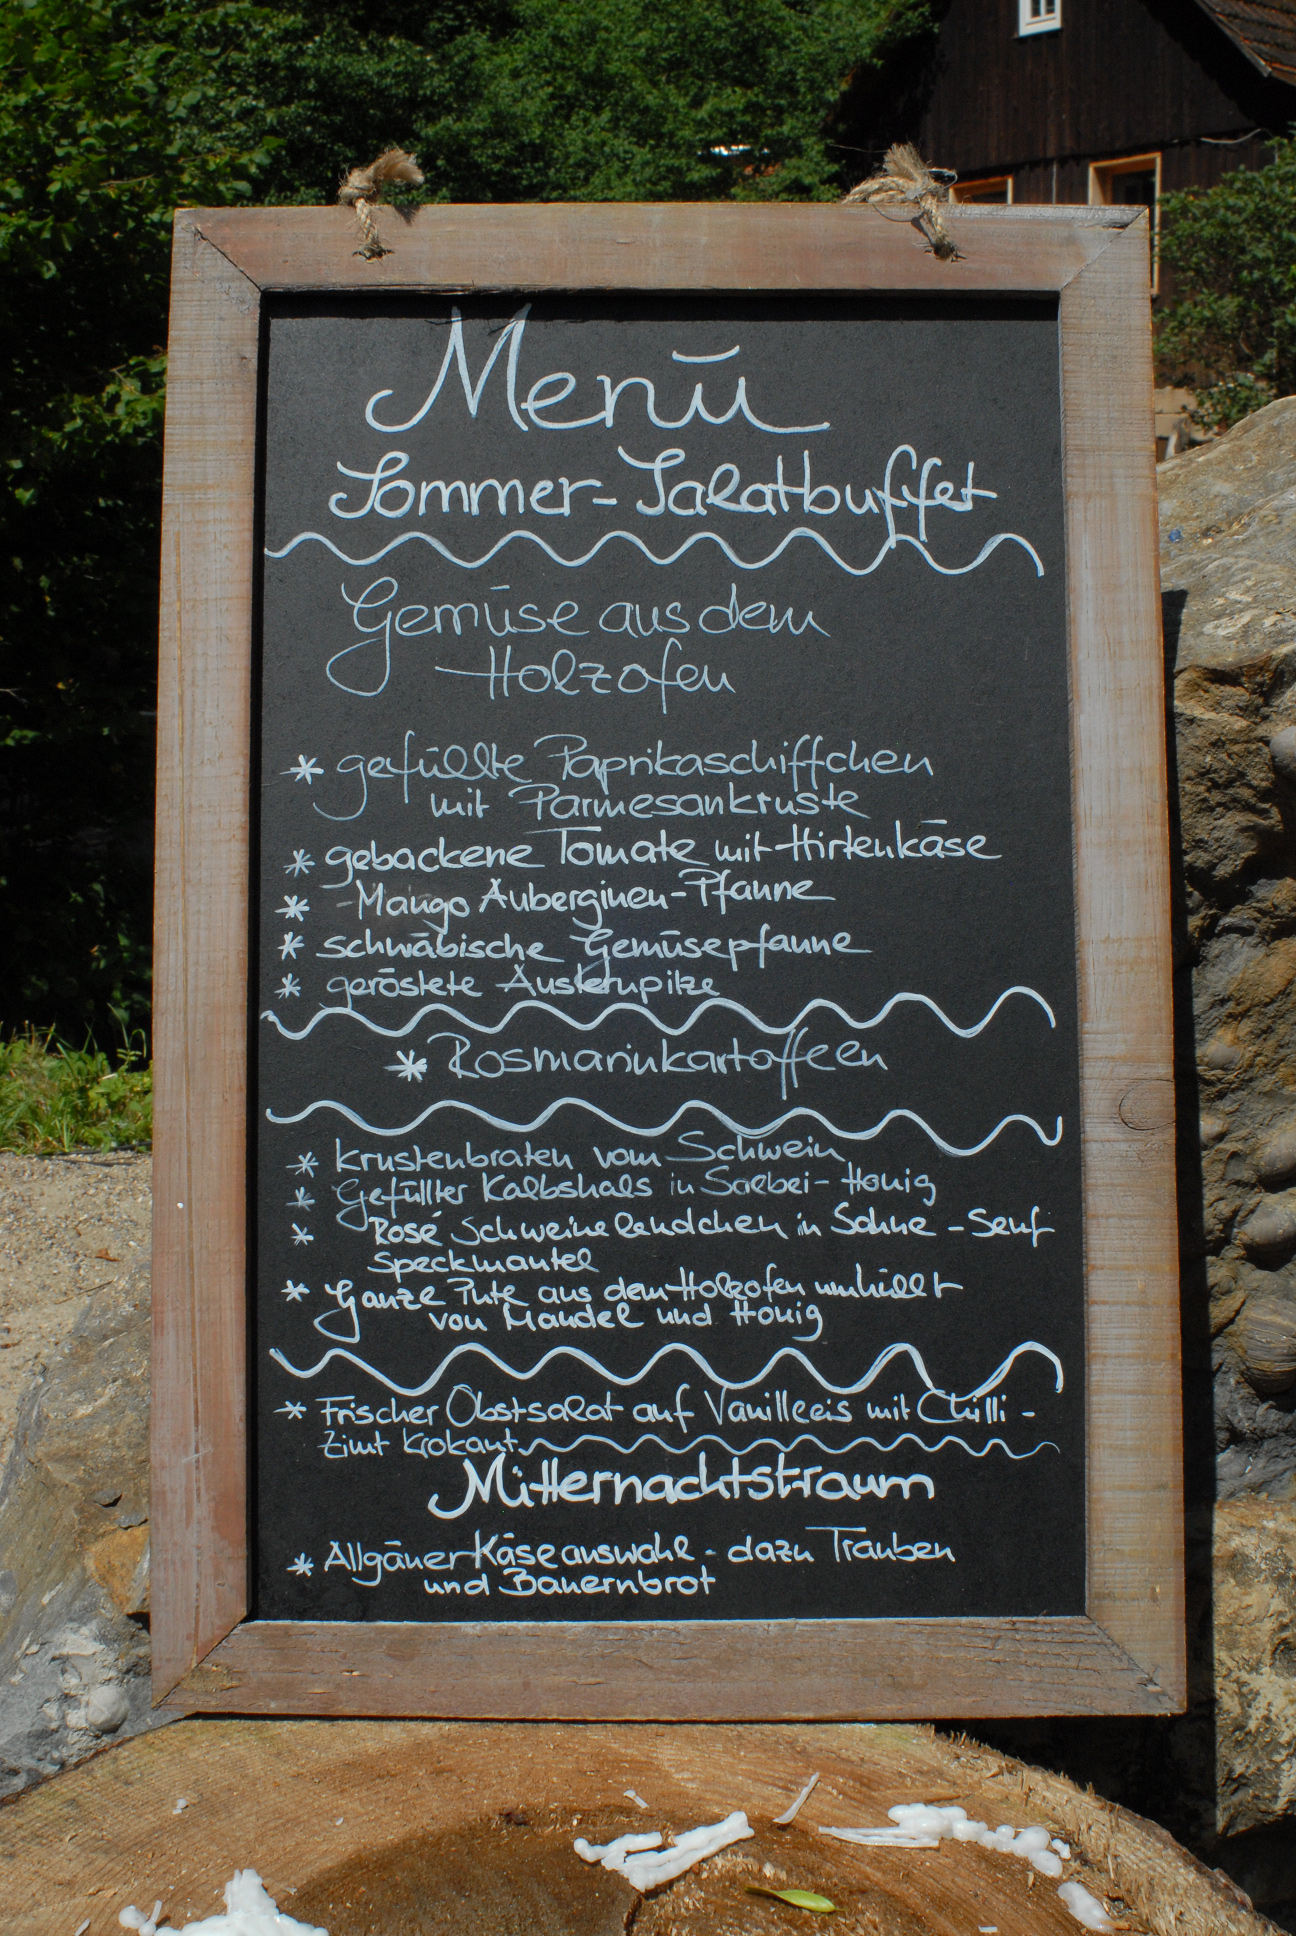 Menü
Sommer-Salatbuffet
Gemüse aus dem
Holzofen
* gefüllte Paprikaschiffchen
mit Parmesankruste
* gebackene Tomate mit Hirtenkäse
* -Mango Auberginen-Pfanne
* schwäbische Gemüsepfanne
* geröstete Austernpilze
* Rosmarinkartoffeln
* Krustenbraten vom Schwein
* Gefüllter Kalbshals in Salbei-Honig
* Rosé Schweinelendchen in Sahne-Senf
Speckmantel
* Ganze Pute aus dem Holzofen umhüllt
von Mandel und Honig
* Frischer Obstsalat auf Vanilleeis mit Chilli-
Zimt Krokant
Mitternachtstraum
* Allgäuer Käseauswahl - dazu Trauben
und Bauernbrot